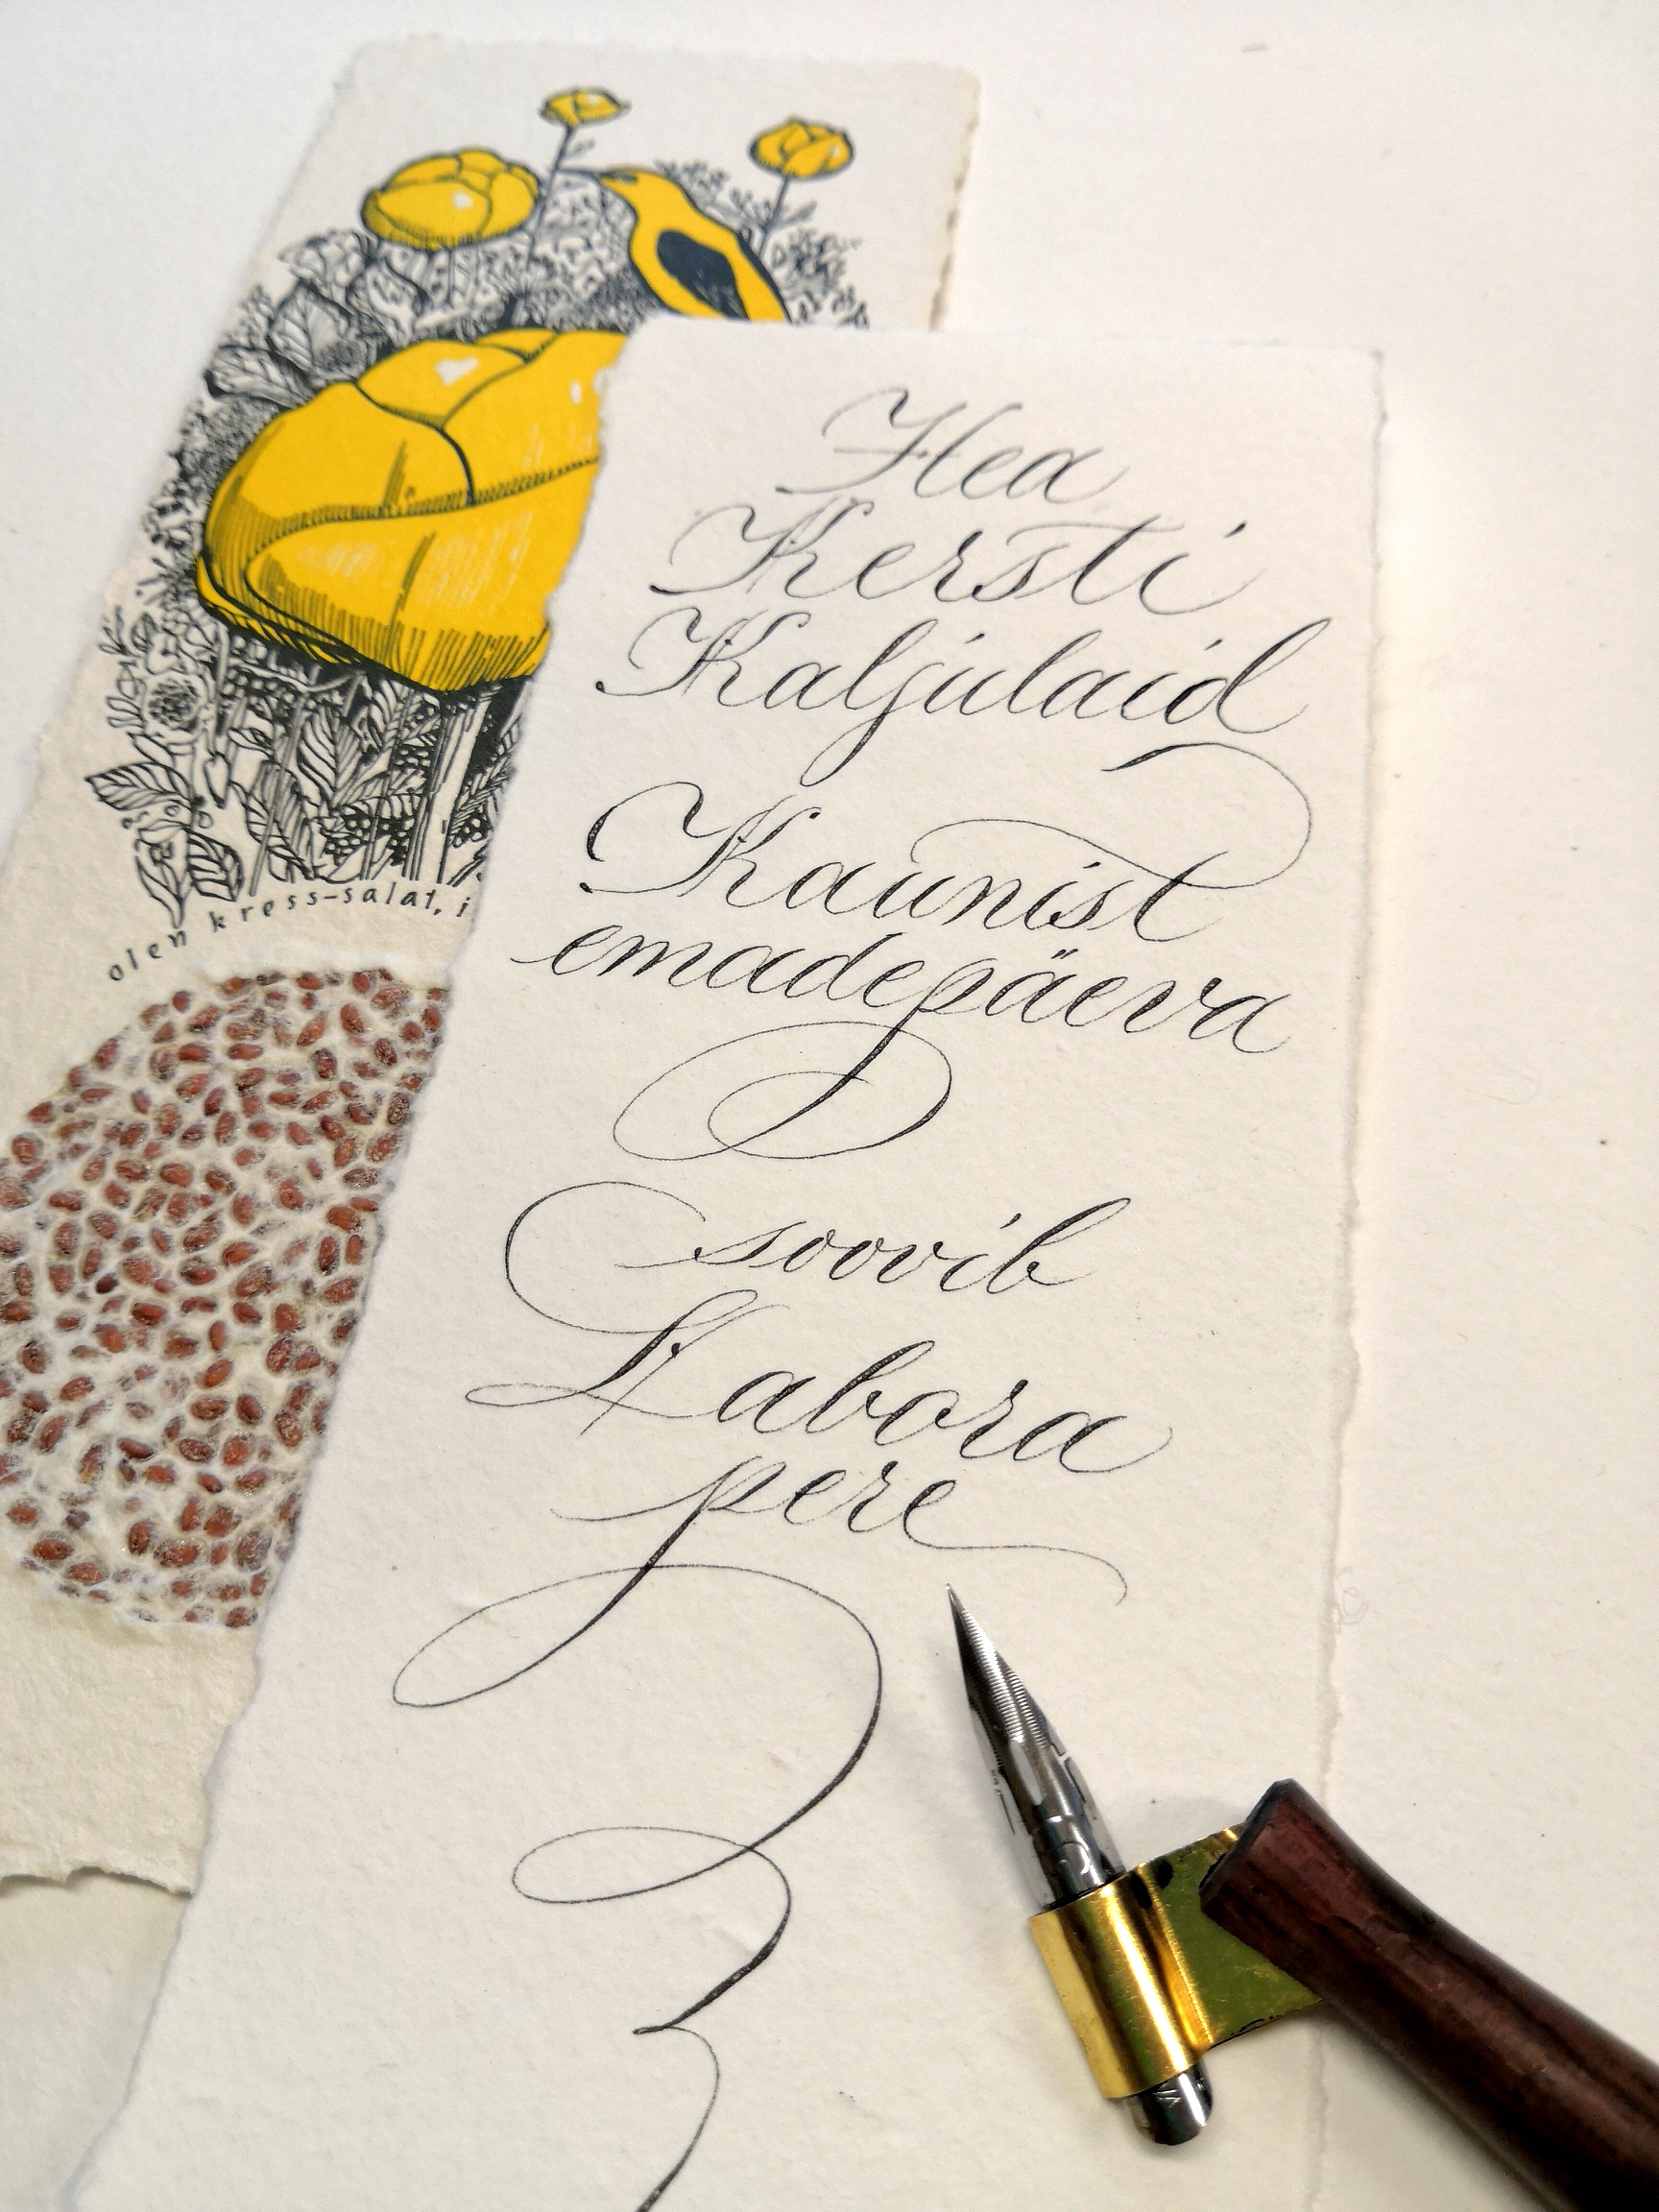 Hea
Kersti
Kaljulaid
Kaunist
emadepäeva
soovib
Labora
pere
olen kress-salat, i